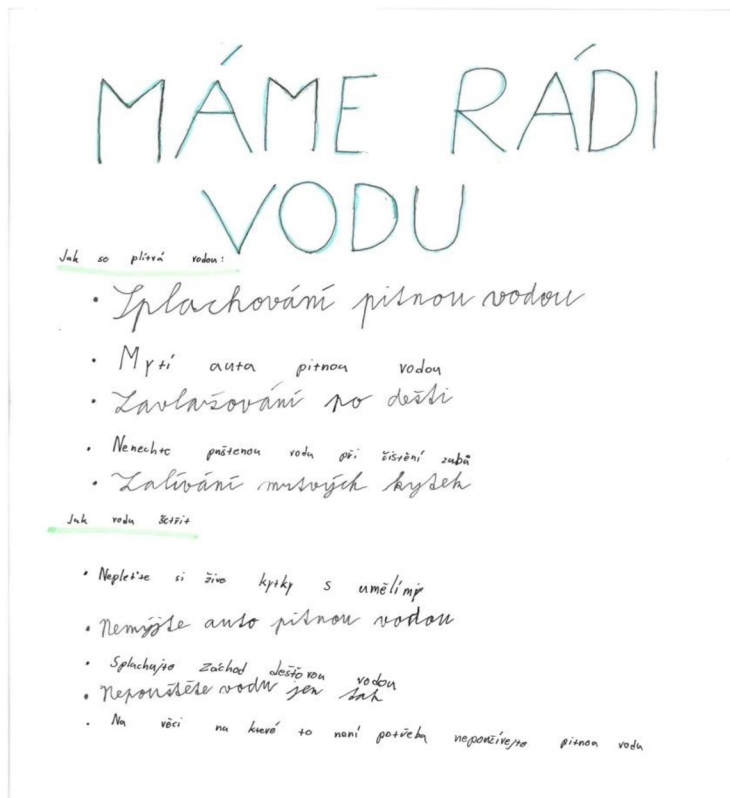 MÁME RÁDI
VODU
Jak se plítvá vodou:
• Splachování pitnou vodou
• Mytí auta pitnou vodou
• Zavlažování po dešti
• Nenechte puštenou vodu při čištění zubů
• Zalívání mrtvých kytek
Jak vodu šetřit
• Nepleťte si živé kytky s umělími
• Nemyjte auto pitnou vodou
• Splachujte záchod dešťovou vodou
• Nepouštěte vodu jen tak
• Na věci na kteró to není potřeba nepoužívejte pitnou vodu